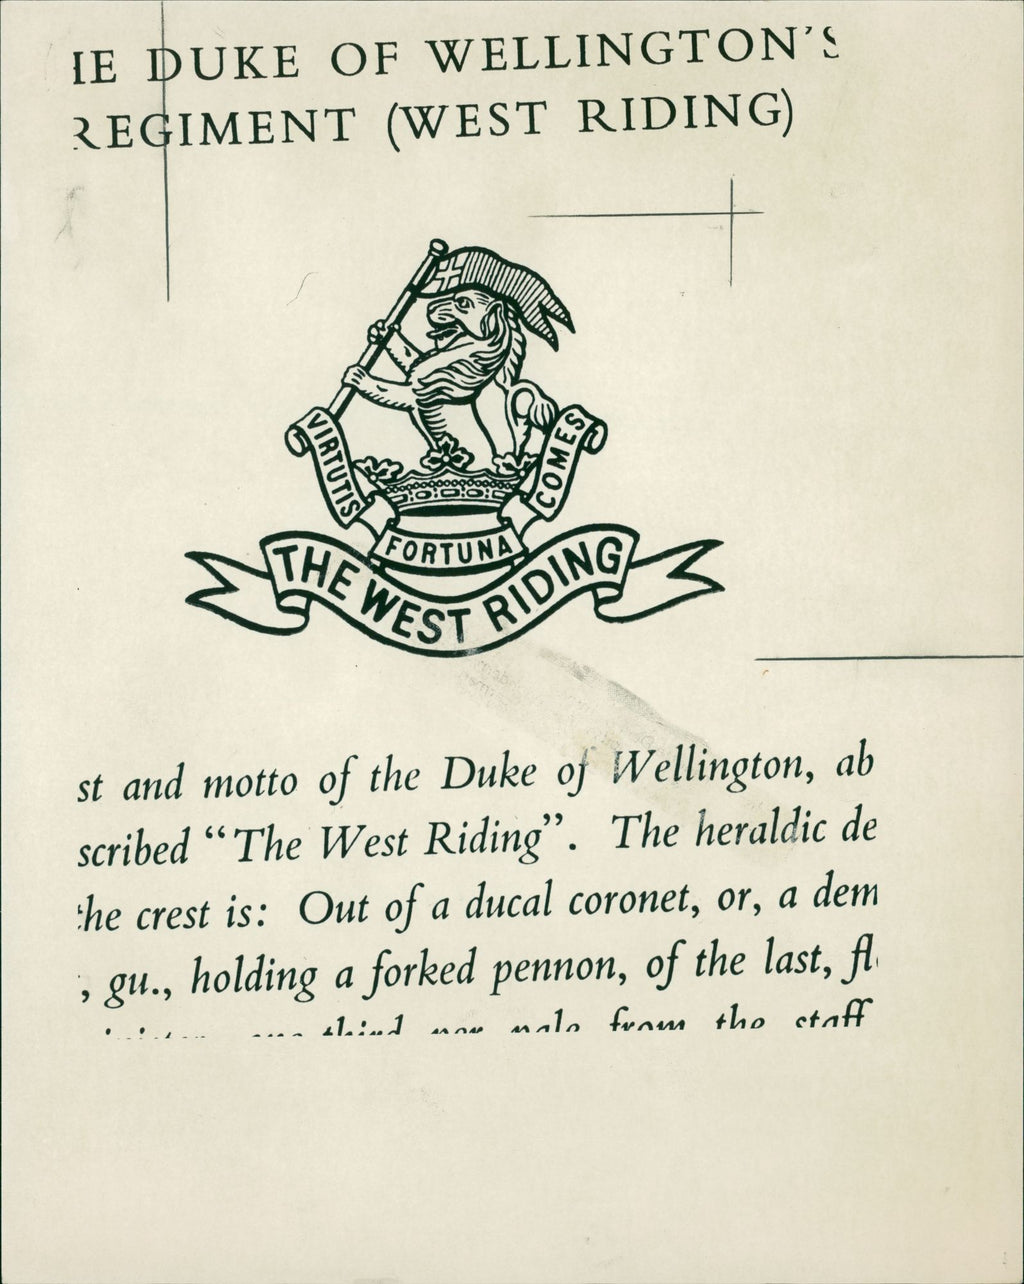 HE DUKE OF WELLINGTON'S
REGIMENT (WEST RIDING)
VIRTUTIS
FORTUNA
COMES
THE WEST RIDING
st and motto of the Duke of Wellington, ab
scribed "The West Riding". The heraldic de
the crest is: Out of a ducal coronet, or, a dem
, gu., holding a forked pennon, of the last, fl
third per pale from the staff